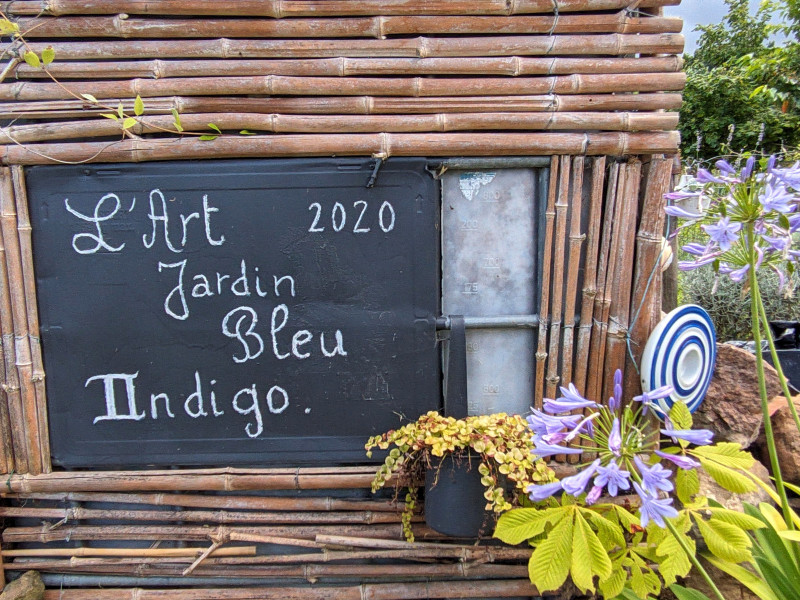 L'Art 2020
Jardin
Bleu
Indigo.